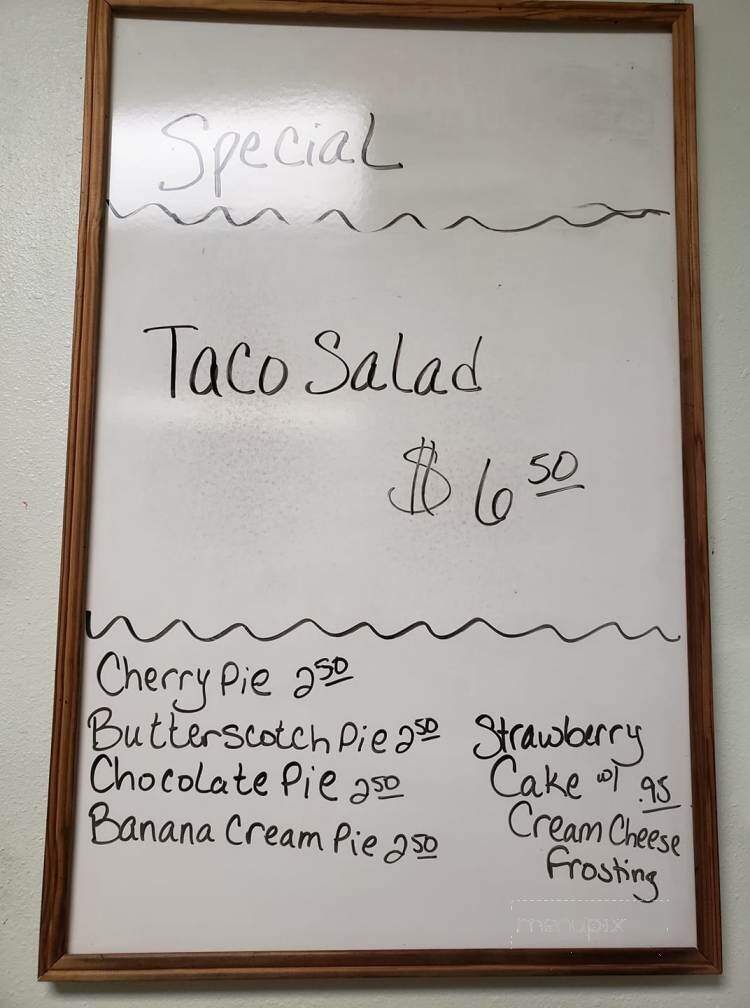 Special
Taco Salad
$6 50
Cherry Pie 2 50
Butterscotch Pie 2 50
Chocolate Pie 2 50
Banana Cream Pie 2 50
Strawberry
Cake w/ .95
Cream Cheese
Frosting
menupix